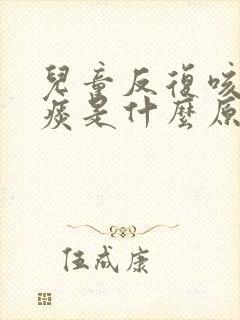 兒童反復咳
痰是什麼原
伍成康